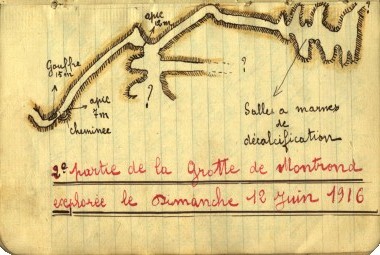 apic
12m
?
Gouffre
15m
apic
7m
cheminée
?
?
Salles a marnes
de
décalcification
2e partie de la Grotte de Montrond
explorée le Dimanche 12 Juin 1916